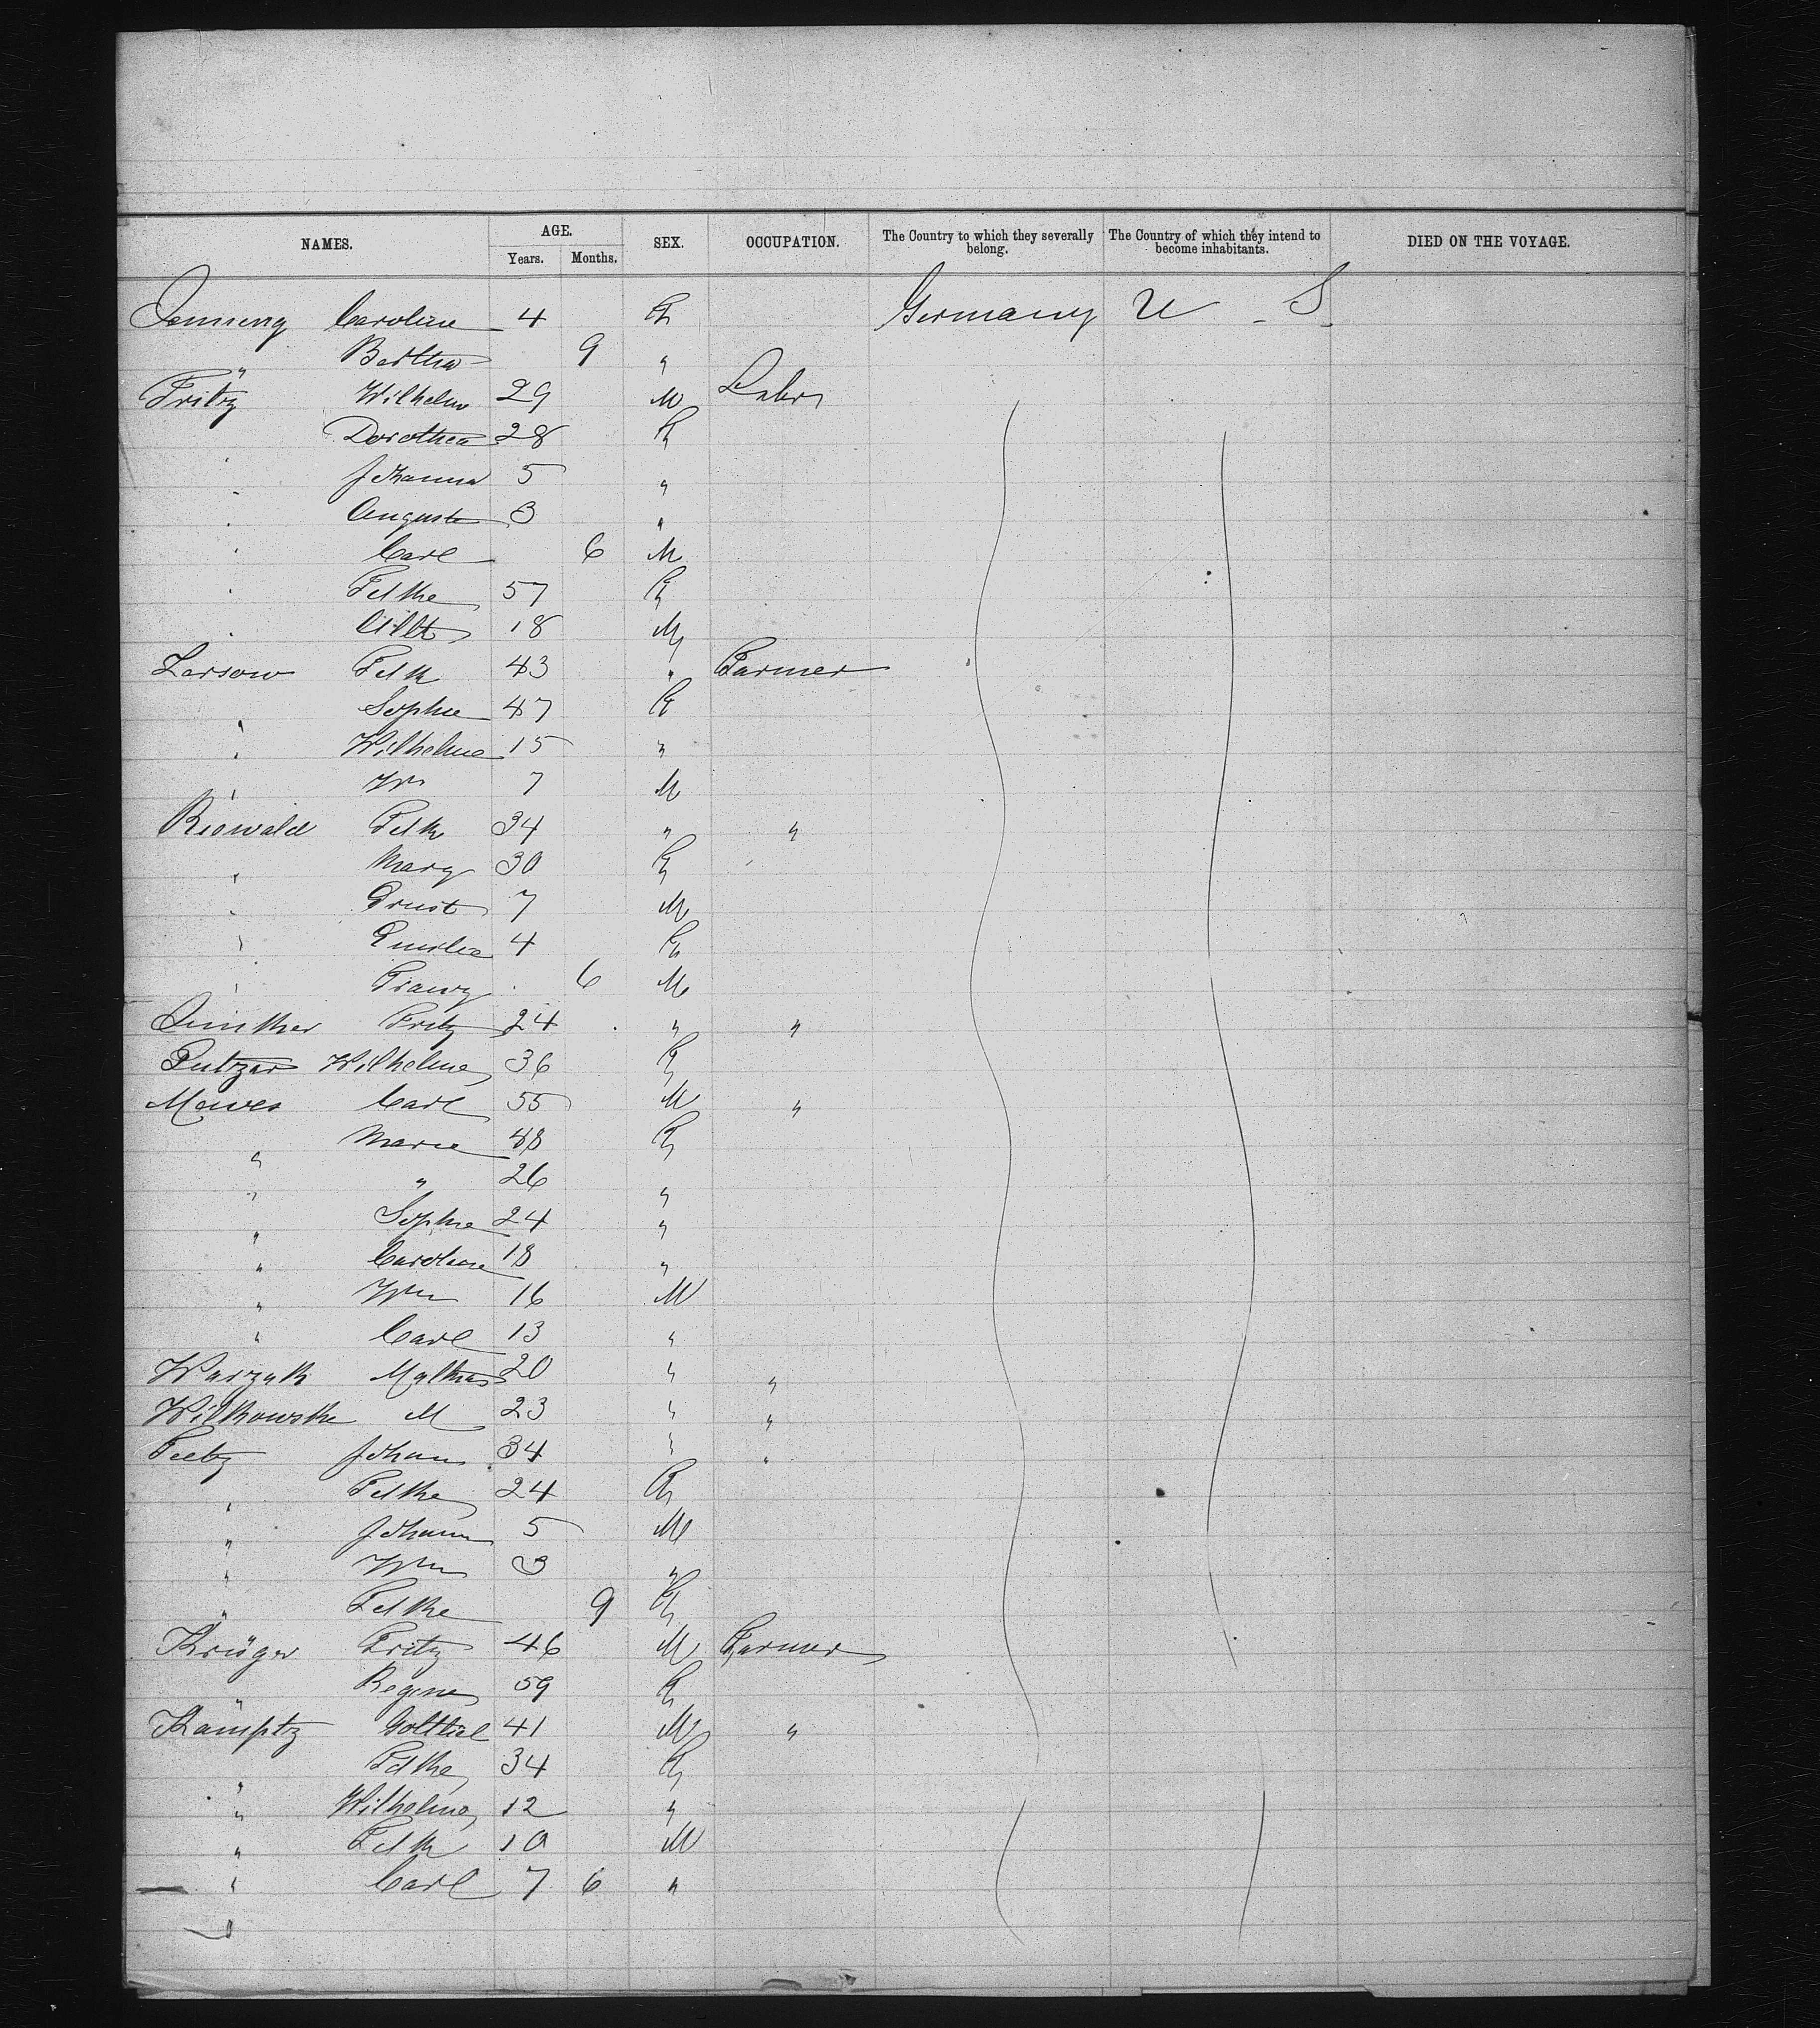 NAMES. AGE. SEX. OCCUPATION. The Country to which they severally belong. The Country of which they intend to become inhabitants. DIED ON THE VOYAGE.
Years. Months.
Caroline 4 F Germany U. S.
" Bertha 9 "
Fritz Wilhelm 29 M Labr
" Dorothea 28 F
" Johanna 5 "
" Auguste 3 "
" Carl 6 M
" Fdke 57 F
" 18 M
Lersow Fdk 43 " Farmer
" Sophie 47 F
" Wilhelmine 15 "
" Wm 7 M
Riewald Fdk 34 " "
" Mary 30 F
" Ernst 7 M
" Emilie 4 F
" Franz 6 M
Fritz 24 " "
Wilhelmine 36 F
Mewes Carl 55 M "
" Marie 48 F
" " 26 "
" Sophie 24 "
" Caroline 18 "
" Wm 16 M
" Carl 13 "
Mathias 20 " "
Wilkowske M 23 " "
Johann 34 " "
" Fdke 24 F
" Johann 5 M
" Wm 3 "
" Fdke 9 F
Krüger Fritz 46 M Farmer
" Regine 59 F
Kamptz Gottlieb 41 M "
" Fdke 34 F
" Wilhelmine 12 "
" Fdk 10 M
" Carl 7 6 "